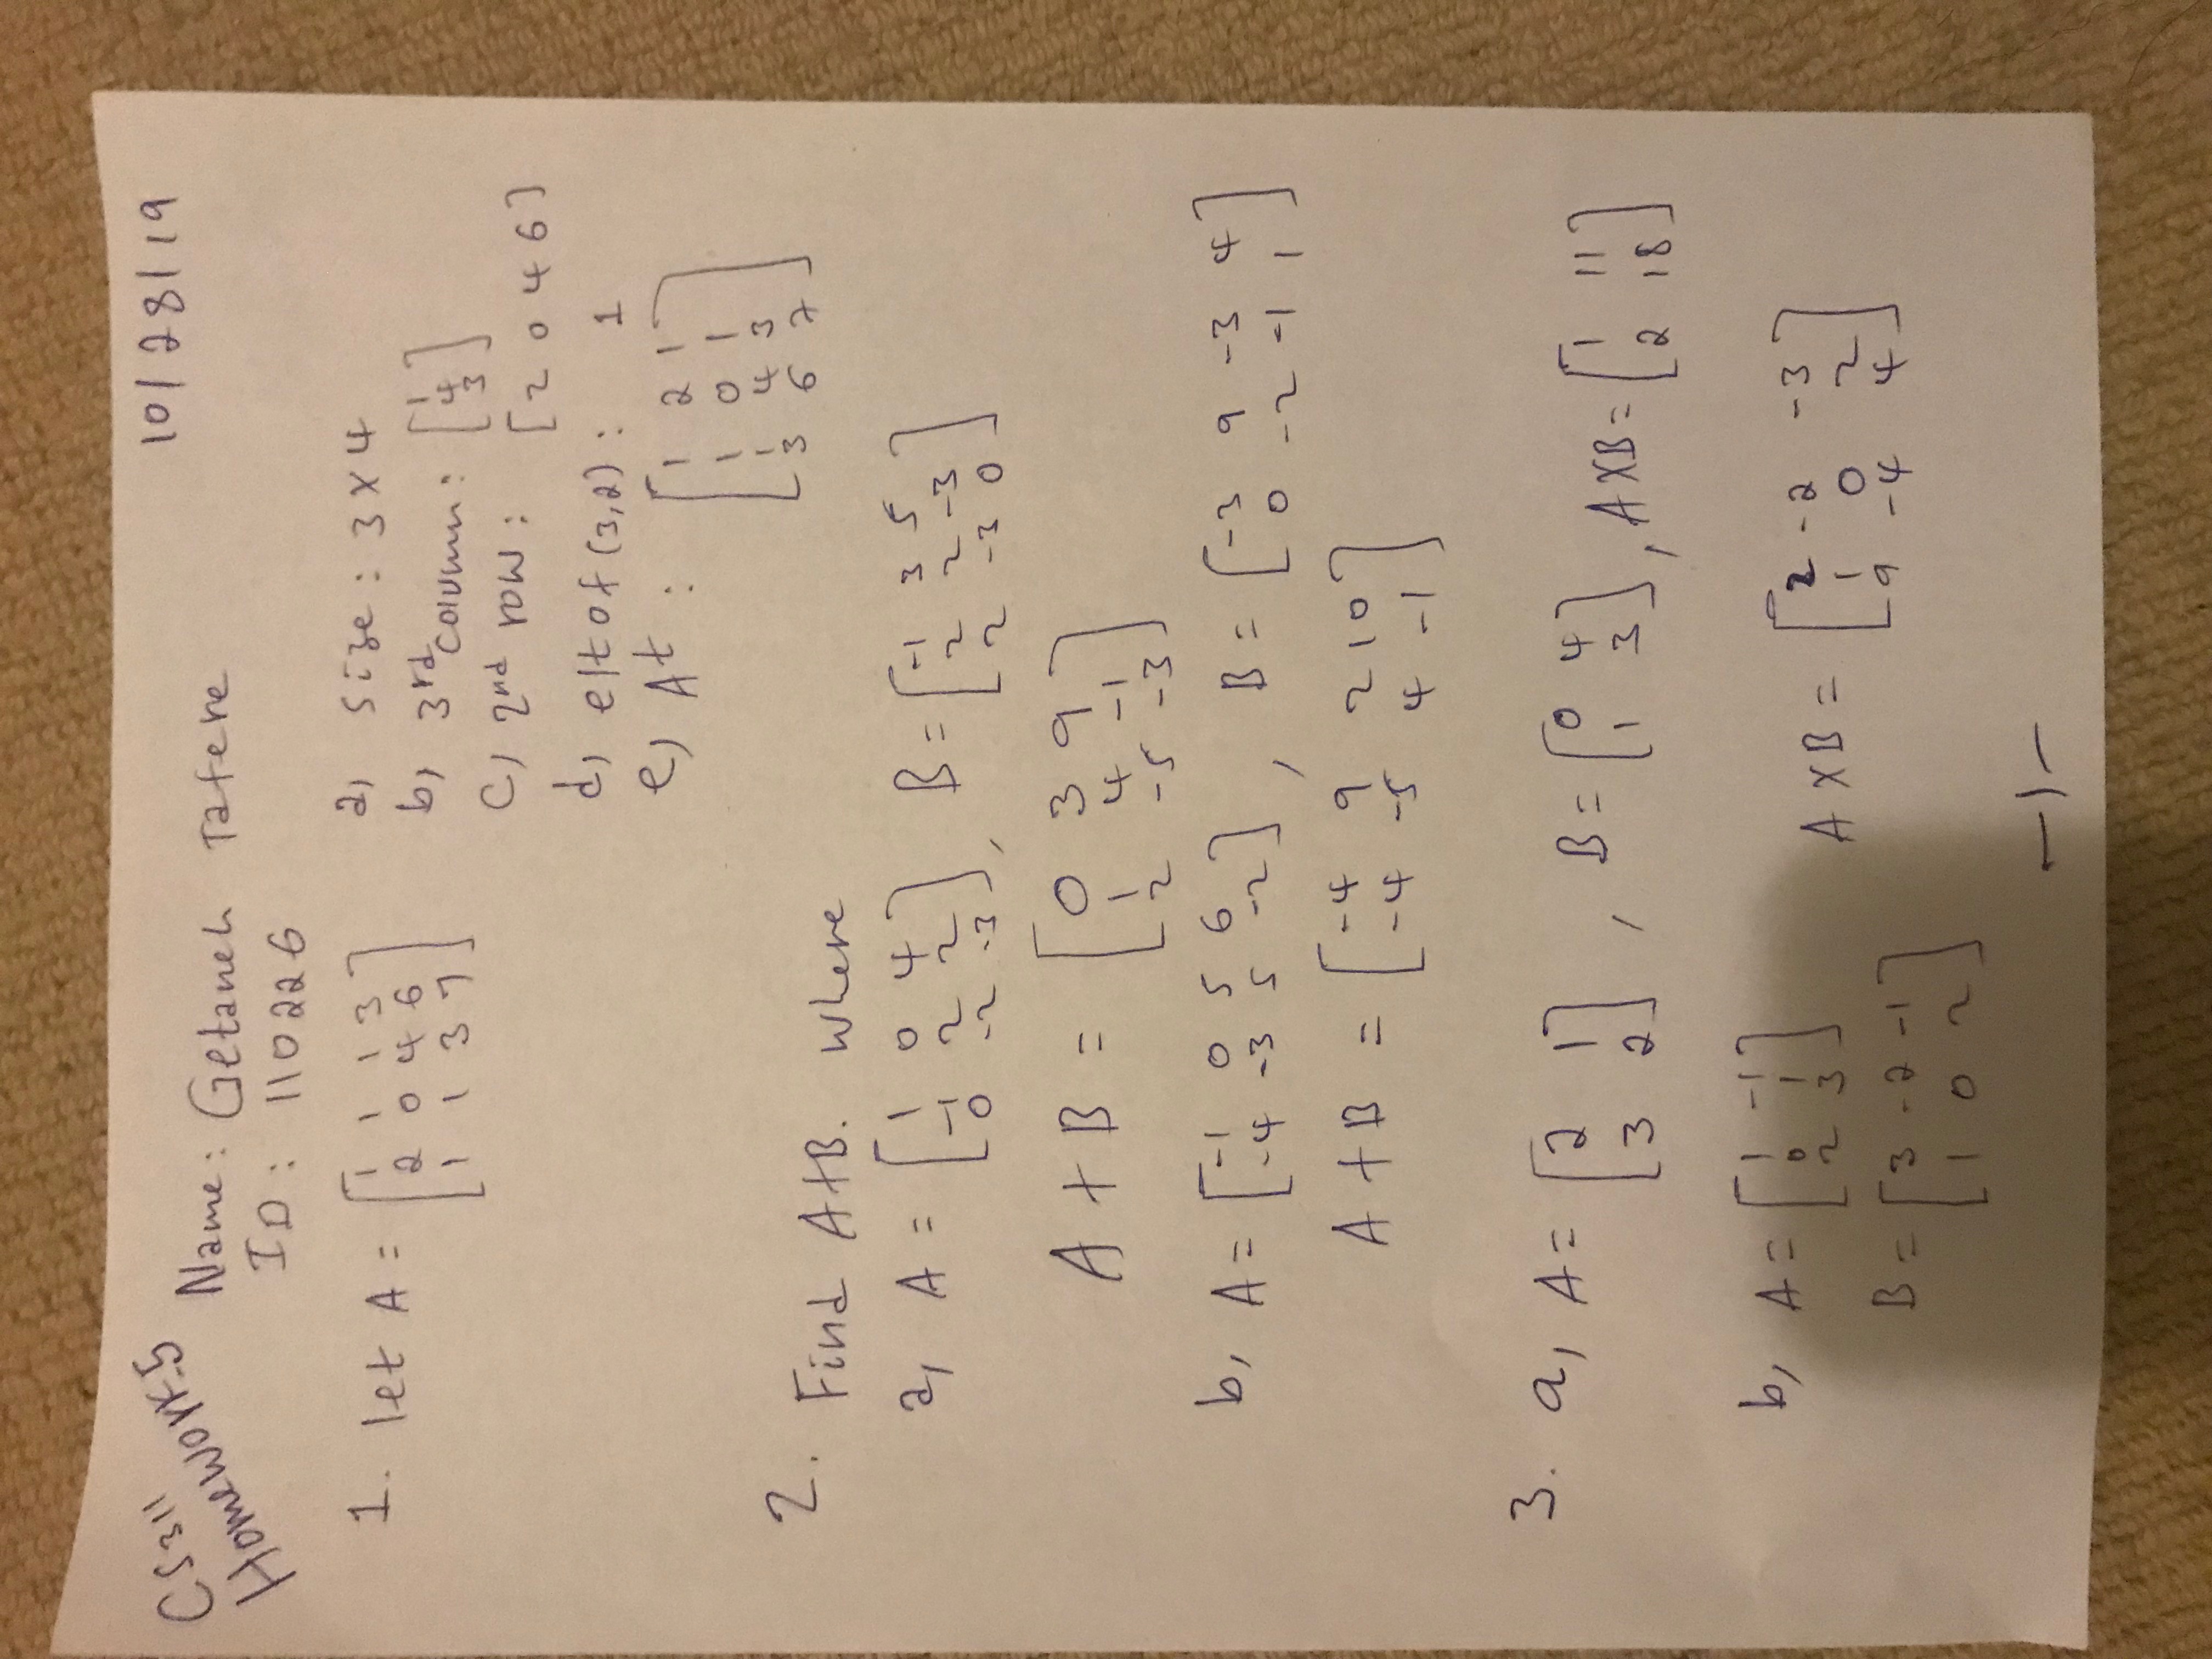 CS311
Homework-5
10/28/19
Name: Getaneh Tafere
ID: 110226
1. let A = [1 1 1 3
2 0 4 6
1 1 3 7]
a, size: 3 X 4
b, 3rd column: [1
4
3]
c, 2nd row: [2 0 4 6]
d, elt of (3,2): 1
e, At: [1 2 1
1 0 1
1 4 3
3 6 7]
2. Find A+B. where
a, A = [1 0 4
-1 2 2
0 -2 -3], B = [-1 3 5
2 2 -3
2 -3 0]
A + B = [0 3 9
1 4 -1
2 -5 -3]
b, A = [-1 0 5 6
-4 -3 5 -2], B = [-3 9 -3 4
0 -2 -1 1]
A + B = [-4 9 2 10
-4 -5 4 -1]
3. a, A = [2 1
3 2], B = [0 4
1 3], AXB = [1 11
2 18]
b, A = [1 -1
0 1
2 3]
B = [3 -2 -1
1 0 2]
A X B = [2 -2 -3
1 0 2
9 -4 4]
-1-